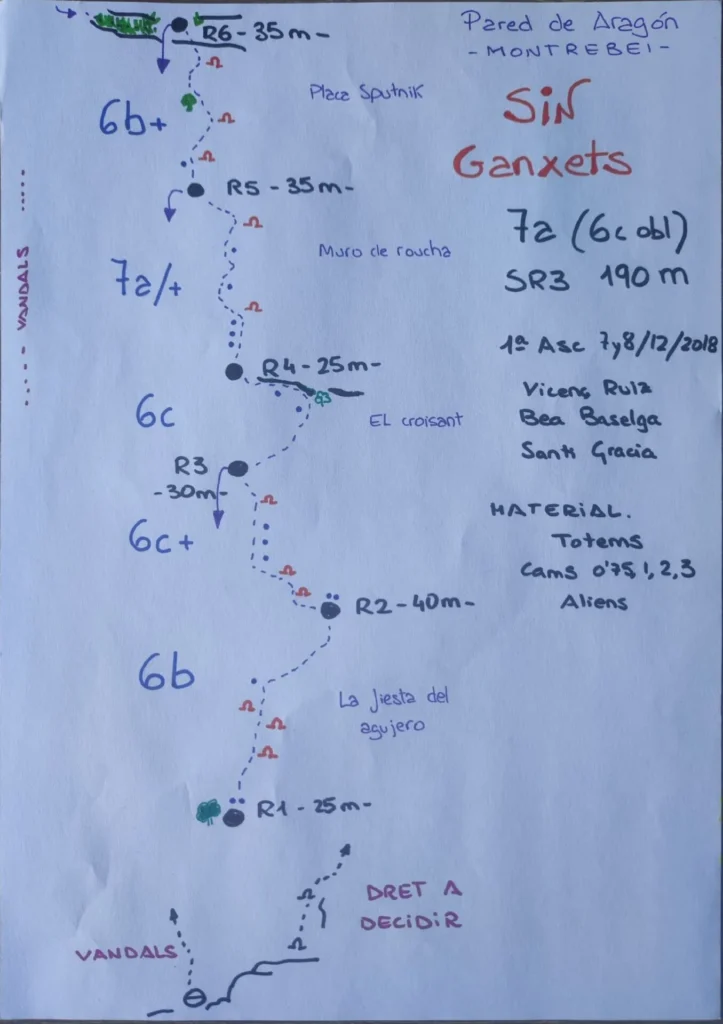 Pared de Aragón
- MONTREBEI -
SIN
Ganxets
7a (6c obl)
SR3 190 m
1ª Asc 7y8/12/2018
Vicenç Ruiz
Bea Baselga
Santi Gracia
MATERIAL.
Totems
Cams 0'75, 1, 2, 3
Aliens
R6 - 35m -
Placa Sputnik
6b+
R5 - 35m -
Muro de roucha
7a/+
VANDALS
R4 - 25m -
6c
EL croisant
R3
- 30m -
6c+
R2 - 40m -
6b
La fiesta del
agujero
R1 - 25m -
DRET A
DECIDIR
VANDALS